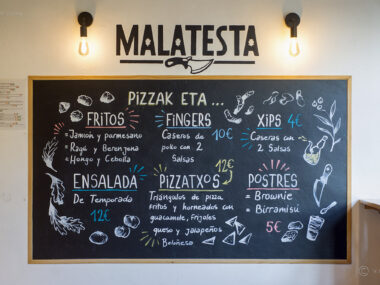 MALATESTA
PIZZAK ETA ...
FRITOS
= Jamón y parmesano
= Ragú y Berenjena
= Hongo y Cebolla
FINGERS
10€
Caseros de
pollo con 2
Salsas
XIPS 4€
Caseras con
2 Salsas
ENSALADA
De Temporada
12€
PIZZATXOS
12€
Triángulos de pizza
fritos y horneados con
guacamole, frijoles
queso y jalapeños
Boloñesa
POSTRES
= Brownie
= Birramisú
5€